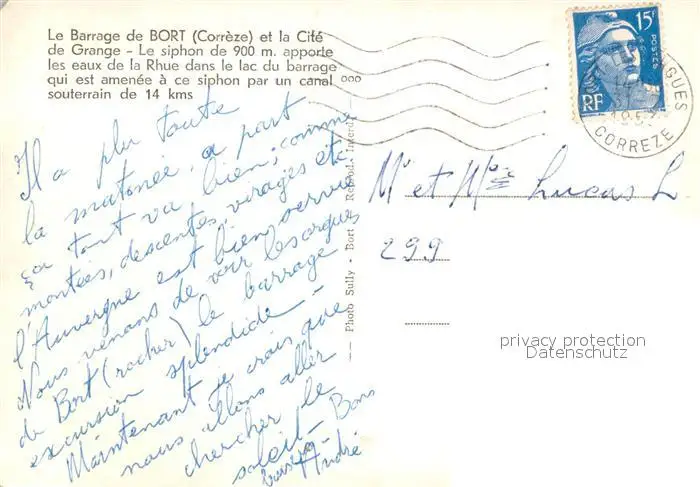 Le Barrage de BORT (Corrèze) et la Cité
de Grange - Le siphon de 900 m. apporte
les eaux de la Rhue dans le lac du barrage
qui est amenée à ce siphon par un canal
souterrain de 14 kms
Il a plu toute
la matinée, a part
ça tout va bien; comme
montées, descentes, virages etc
l'Auvergne est bien servie
Nous venons de voir les orgues
de Bort (rocher) le barrage
excursion splendide -
Maintenant je crois que
nous allons aller
chercher le
soleil - Bons
André
Photo Sully - Bort - Reprod. Interdite
15F
POSTES
RF
CORREZE
Mr et Mme Lucas L
299
privacy protection
Datenschutz